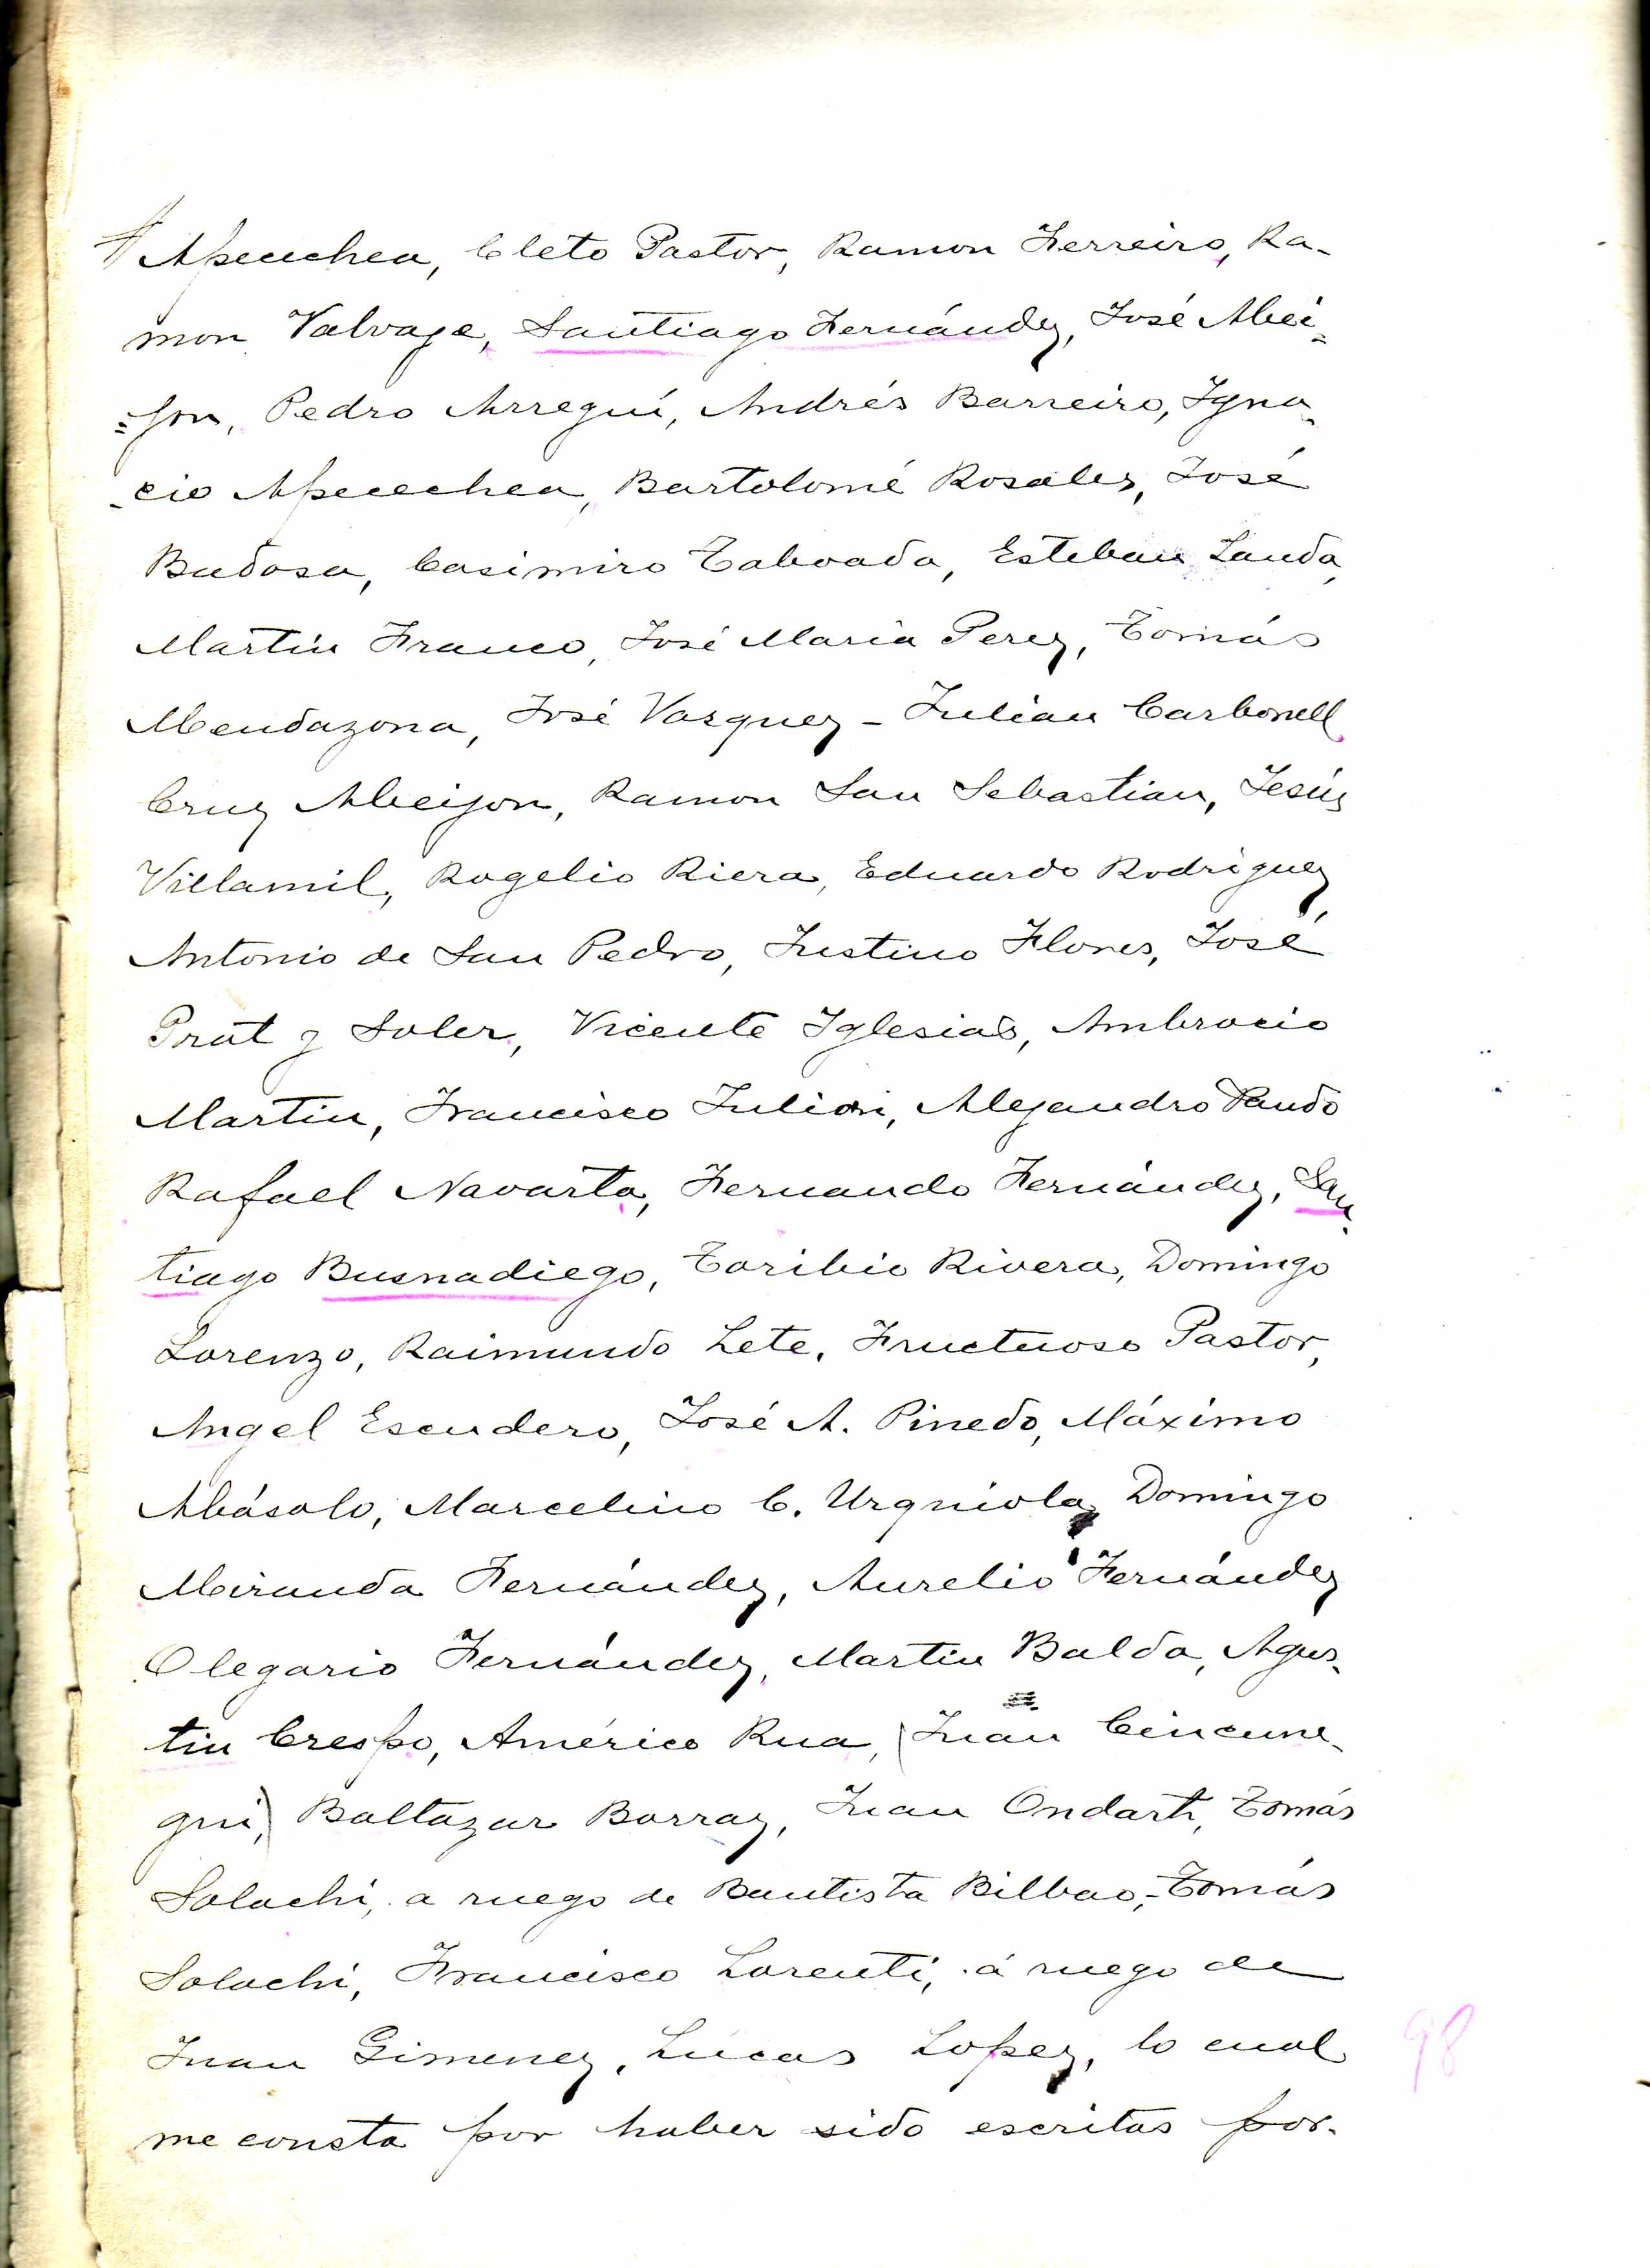 Apecechea, Cleto Pastor, Ramon Ferreiro, Ra-
mon Valvaje, Santiago Fernández, José Abei-
=jon, Pedro Arreguí, Andrés Barreiro, Igna-
-cio Apecechea, Bartolomé Rosales, José
Badosa, Casimiro Taboada, Esteban Landa,
Martín Franco, José María Perez, Tomás
Mendazona, José Vazquez - Julian Carbonell
Cruz Abeijon, Ramon San Sebastian, Jesús
Villamil, Rogelio Riera, Eduardo Rodríguez,
Antonio de San Pedro, Justino Flores, José
Prat y Soler, Vicente Iglesias, Ambrocio
Martin, Francisco Julian, Alejandro Pando
Rafael Navarta, Fernando Fernández, San-
tiago Busnadiego, Toribio Rivera, Domingo
Lorenzo, Raimundo Lete, Fructuoso Pastor,
Angel Escudero, José A. Pinedo, Máximo
Abásolo, Marcelino C. Urquiola, Domingo
Miranda Fernández, Aurelio Fernández
Olegario Fernández, Martin Balda, Agus-
tin Crespo, Américo Rua, (Juan Cincune-
gui), Baltazar Borraz, Juan Ondarti, Tomás
Solachi, a ruego de Bautista Bilbao,-Tomás
Solachi, Francisco Lorenti, á ruego de
Juan Gimenez, Lucas Lopez, lo cual
me consta por haber sido escritas por-
98